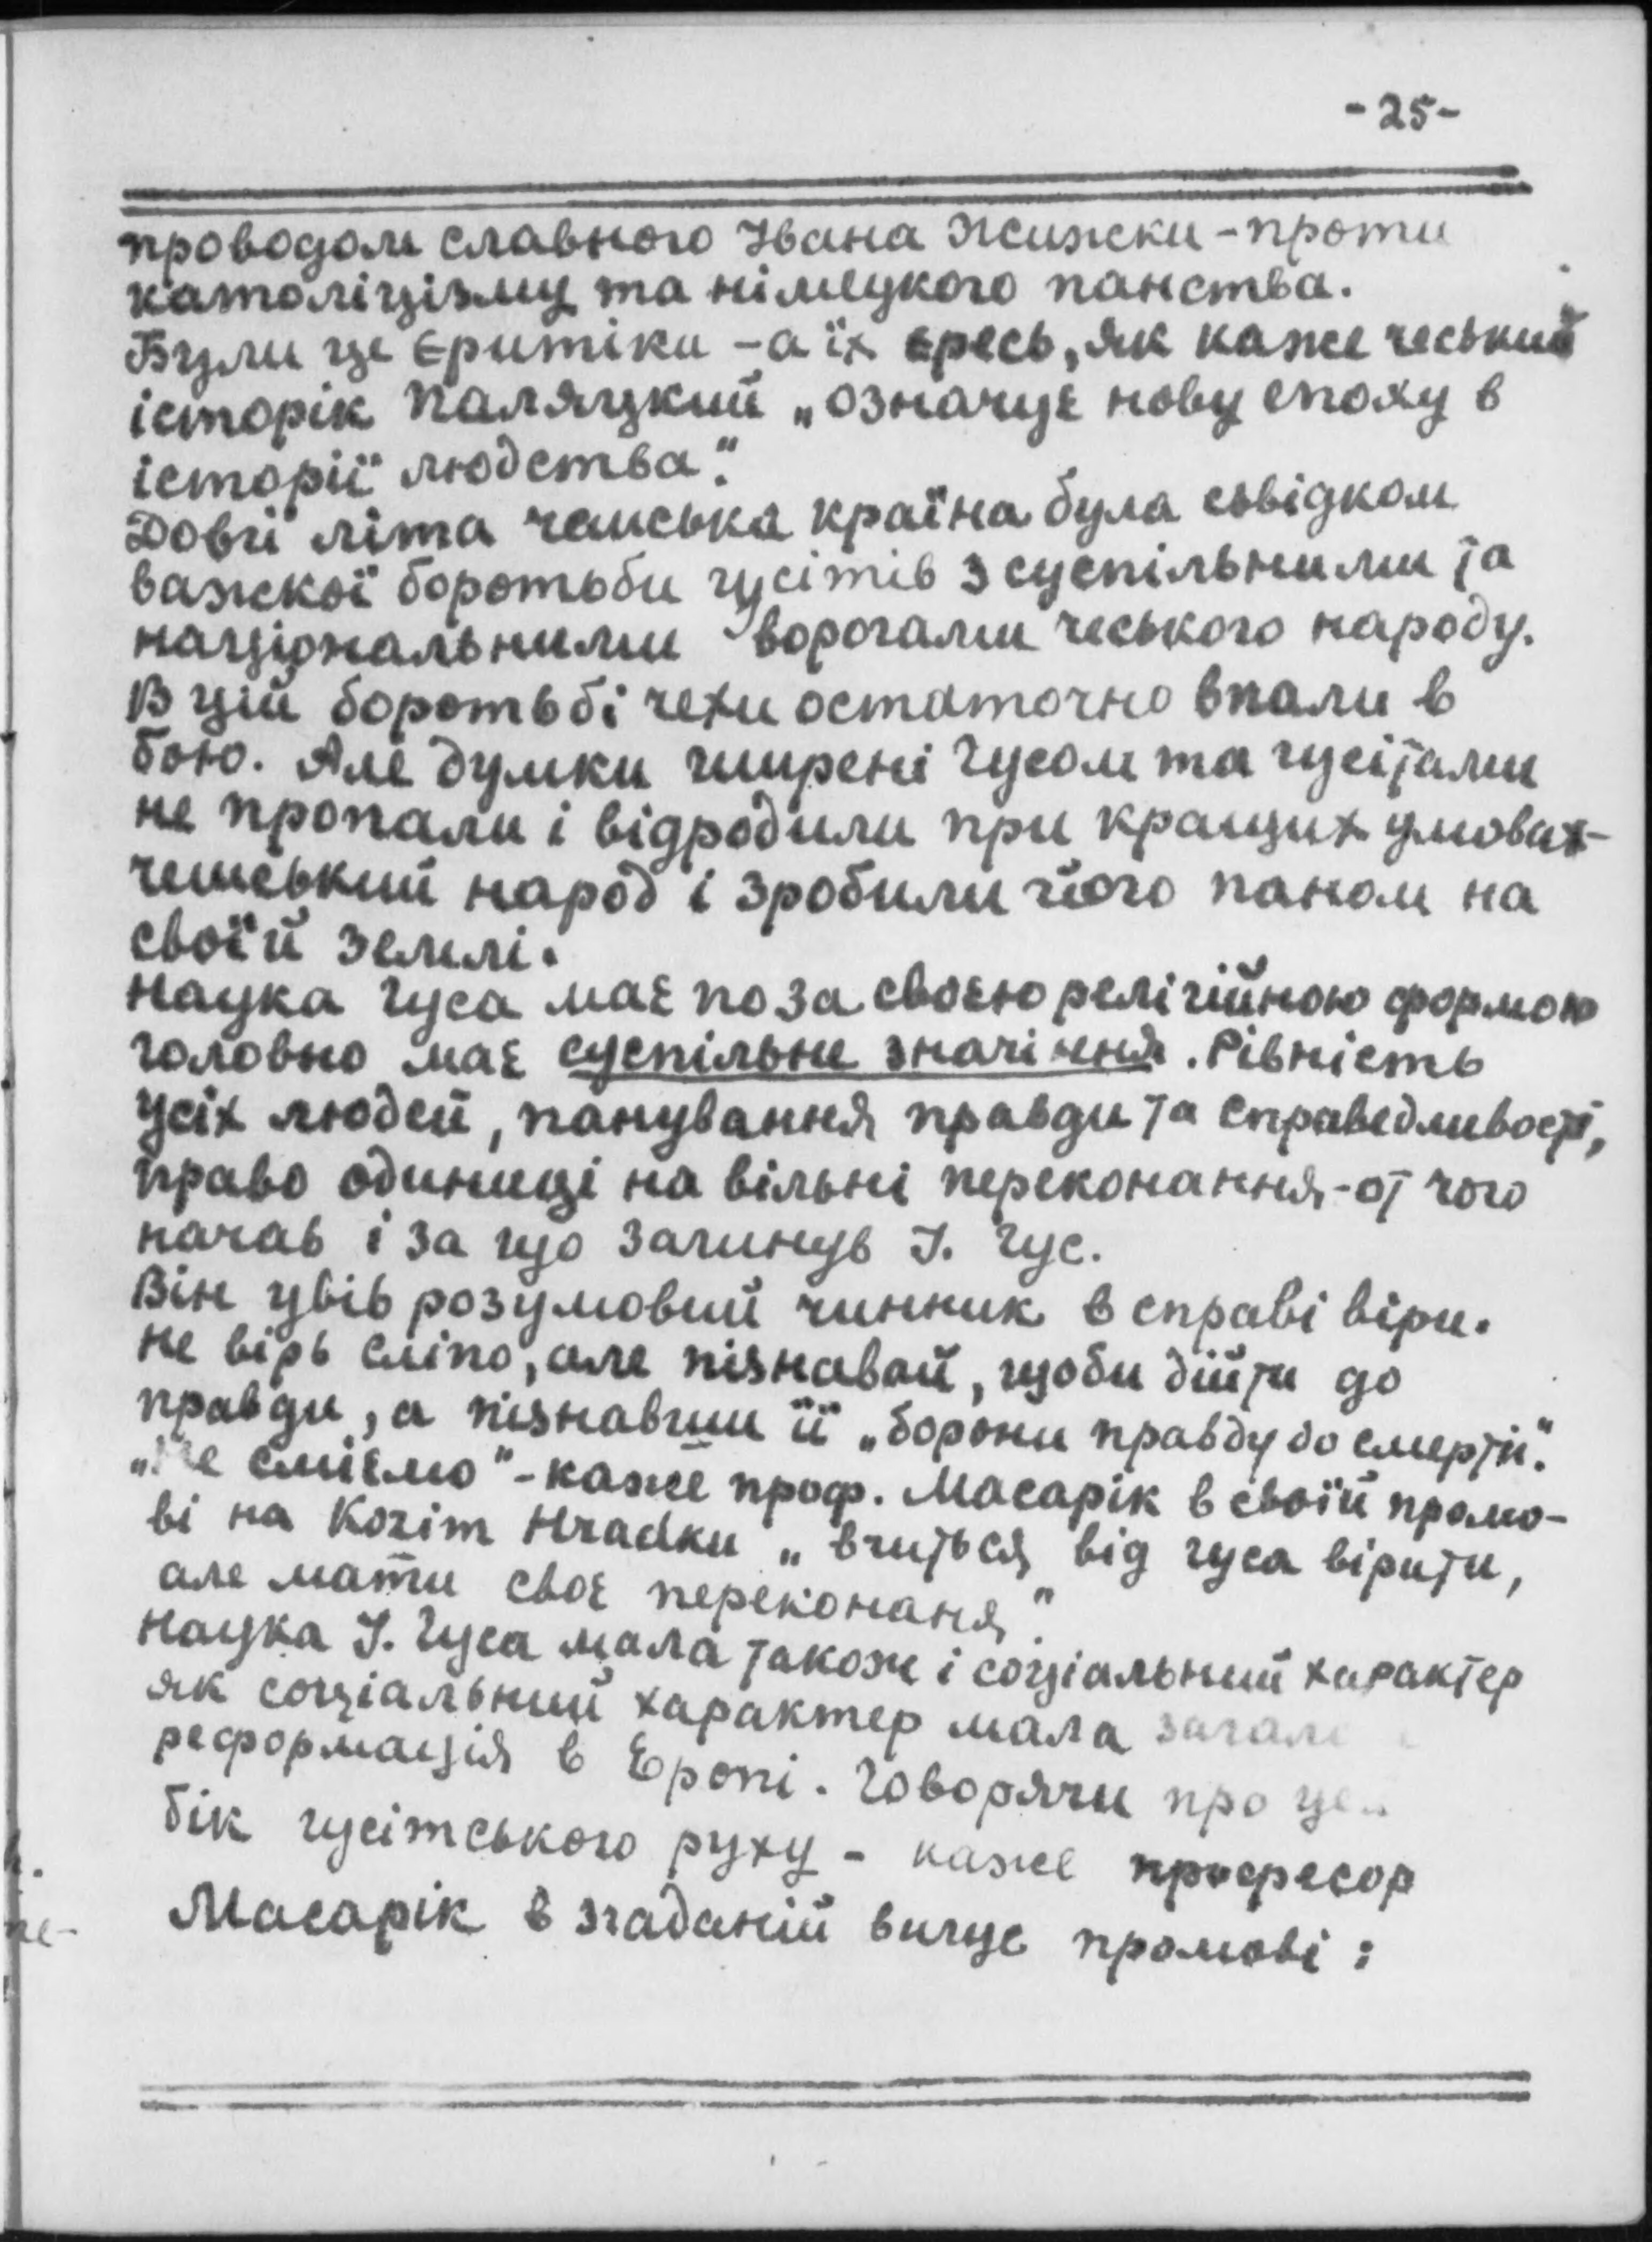 -25-
проводом славного Івана Жижки - проти
католіцізму та німецкого панства.
Були це єритіки - а їх єресь, як каже чеський
історік Паляцкий „означує нову епоху в
історії людства".
Довгі літа чешська країна була свідком
важскої боротьби гусітів з суспільними та
національними ворогами чеського народу.
В цій боротьбі чехи остаточно впали в
бою. Але думки ширені Гусом та гусітами
не пропали і відродили при кращих умовах-
чешський народ і зробили його паном на
своїй землі.
Наука Гуса має поза своєю релігійною формою
головно має суспільне значіння. Рівність
усіх людей, панування правди та справедливості,
право одиниці на вільні переконання - от чого
начав і за що загинув І. Гус.
Він увів розумовий чинник в справі віри.
Не вірь сліпо, але пізнавай, щоби дійти до
правди, а пізнавши її „борони правду до смерти".
„Не сміємо" - каже проф. Масарік в своїй промо-
ві на Kozím Hradku „вчиться від гуса вірити,
але мати своє переконаня".
Наука І. Гуса мала також і соціальний характер
як соціальний характер мала
реформація в Европі. Говорячи про
бік гусітського руху - каже професор
Масарік в згаданій вище промові: